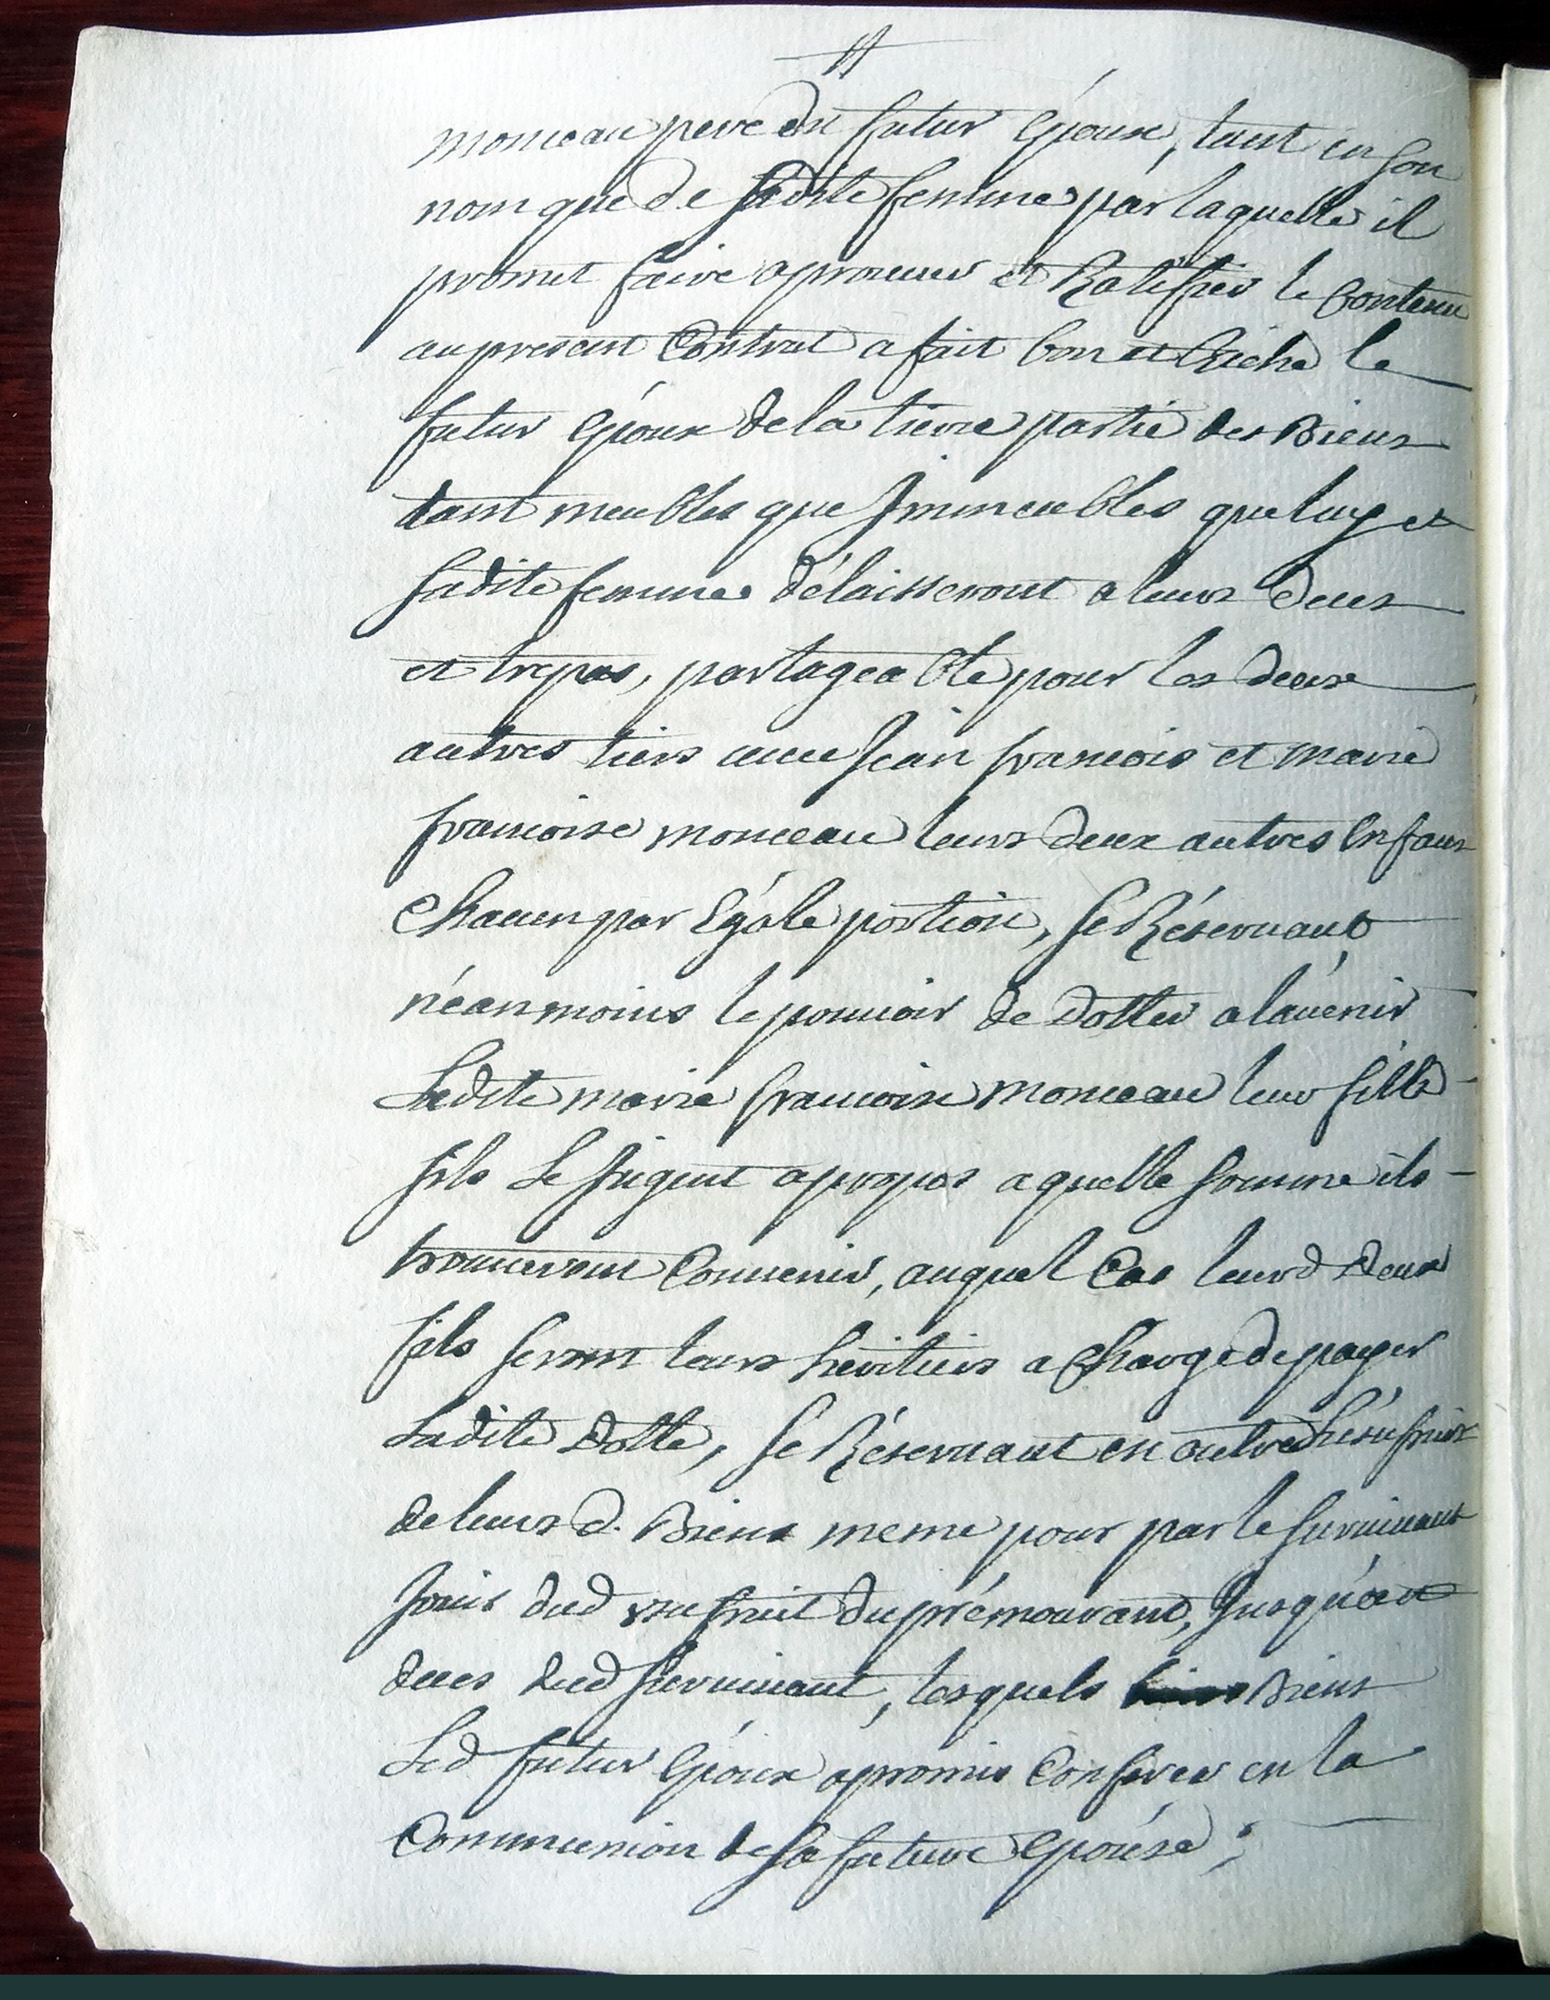 monceau pere du futur Epoux, tant en son
nom que de sadite femme par laquelle il
promet faire aprouver et Ratifier le Contenu
au present Contrat a fait bon et Riche le
futur Epoux de la tierce partie des Biens
tant meubles que Immeubles que luy et
sadite femme délaisseront a leurs deces
et trepas, partageable pour les deux
autres tiers avec Jean francois et marie
francoise monceau leurs deux autres Enfans
Chacun par Egale portion, se Réservant
néanmoins le pouvoir de Dotter a lavenir
Ladite marie francoise monceau leur fille
sils Le Jugent apropos a quelle somme ils
trouveront Convenir, auquel Cas leurd Deux
fils seront leurs héritiers a Charge de payer
Ladite Dotte, se Réservant en outre Lusufruit
de leurs d. Biens meme pour par le survivant
Jouir dud usufruit du prémourant, Jusqu'au
deces dud survivant, lesquels Biens
Led futur Epoux a promis Conferer en la
Communion de sa future Epouse ;